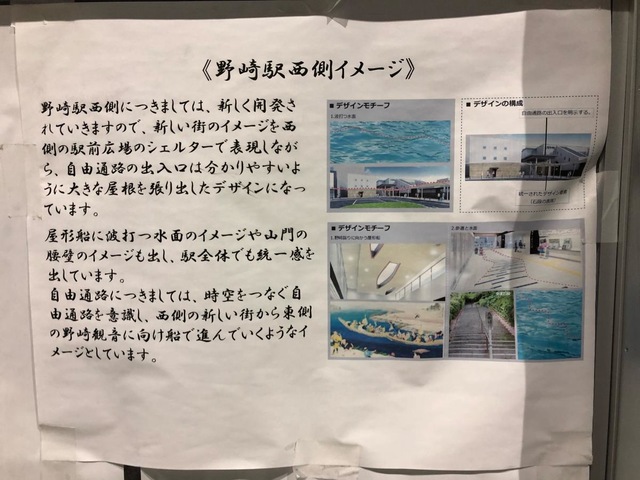 《野崎駅西側イメージ》
野崎駅西側につきましては、新しく開発さ
れていきますので、新しい街のイメージを西
側の駅前広場のシェルターで表現しなが
ら、自由通路の出入口は分かりやすいよ
うに大きな屋根を張り出したデザインになっ
ています。
屋形船に波打つ水面のイメージや山門の
腰壁のイメージも出し、駅全体でも統一感を
出しています。
自由通路につきましては、時空をつなぐ自
由通路を意識し、西側の新しい街から東側
の野崎観音に向け船で進んでいくようなイ
メージとしています。
■デザインモチーフ
1.波打つ水面
■デザインの構成
自由通路の出入口を明示する。
統一されたデザイン
■デザインモチーフ
1.野崎詣りに向かう屋形船
2.参道と水面